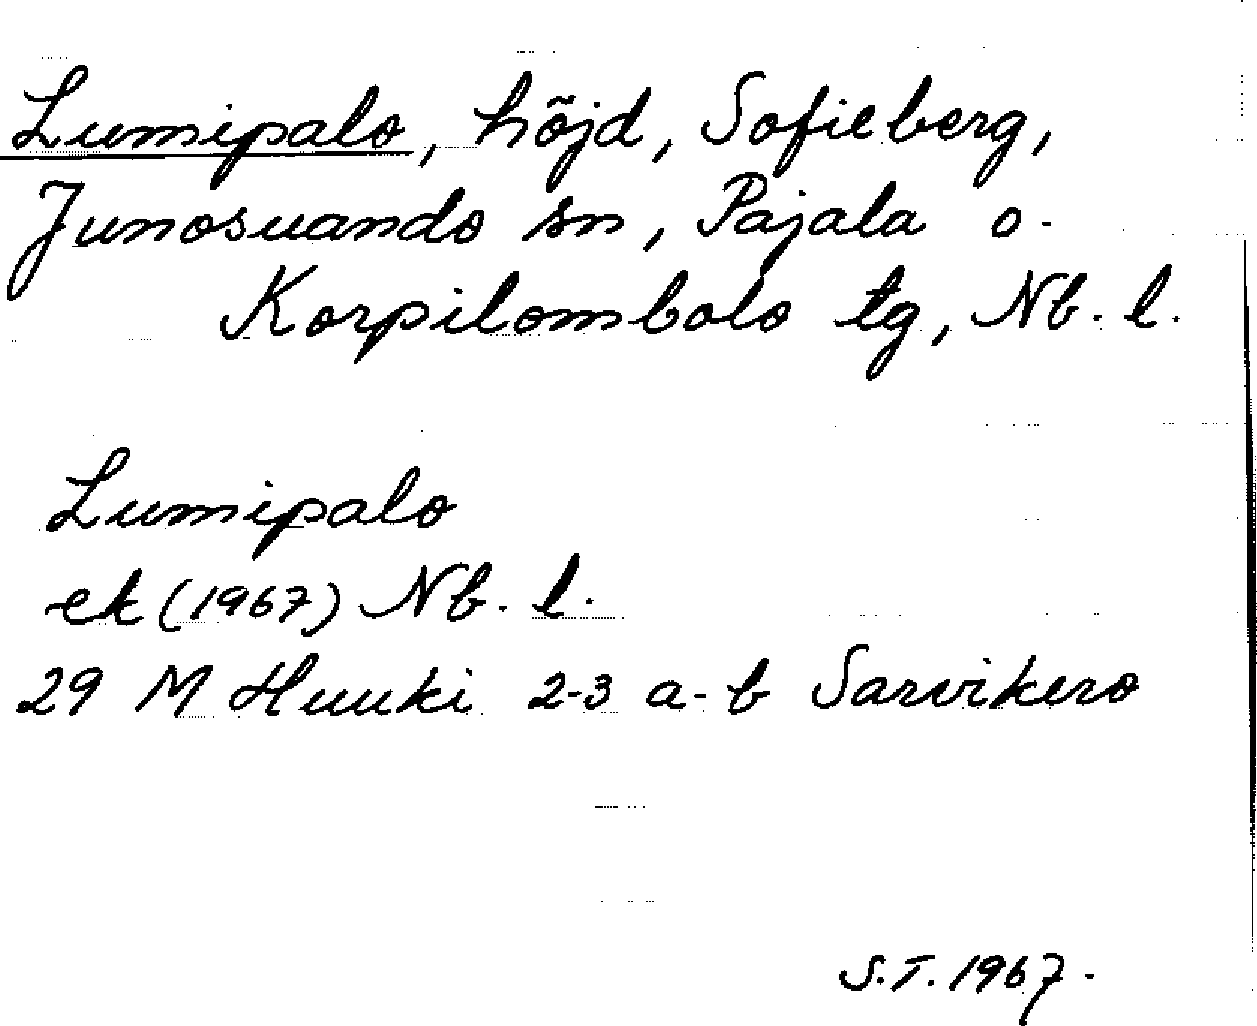 Lumipalo, höjd, Sofieberg,
Junosuando sn, Pajala o.
Korpilombolo tg, Nb. l.
Lumipalo
ek (1967) Nb. l.
29 M Huuki 2-3 a-b Sarvikero
S.T. 1967.